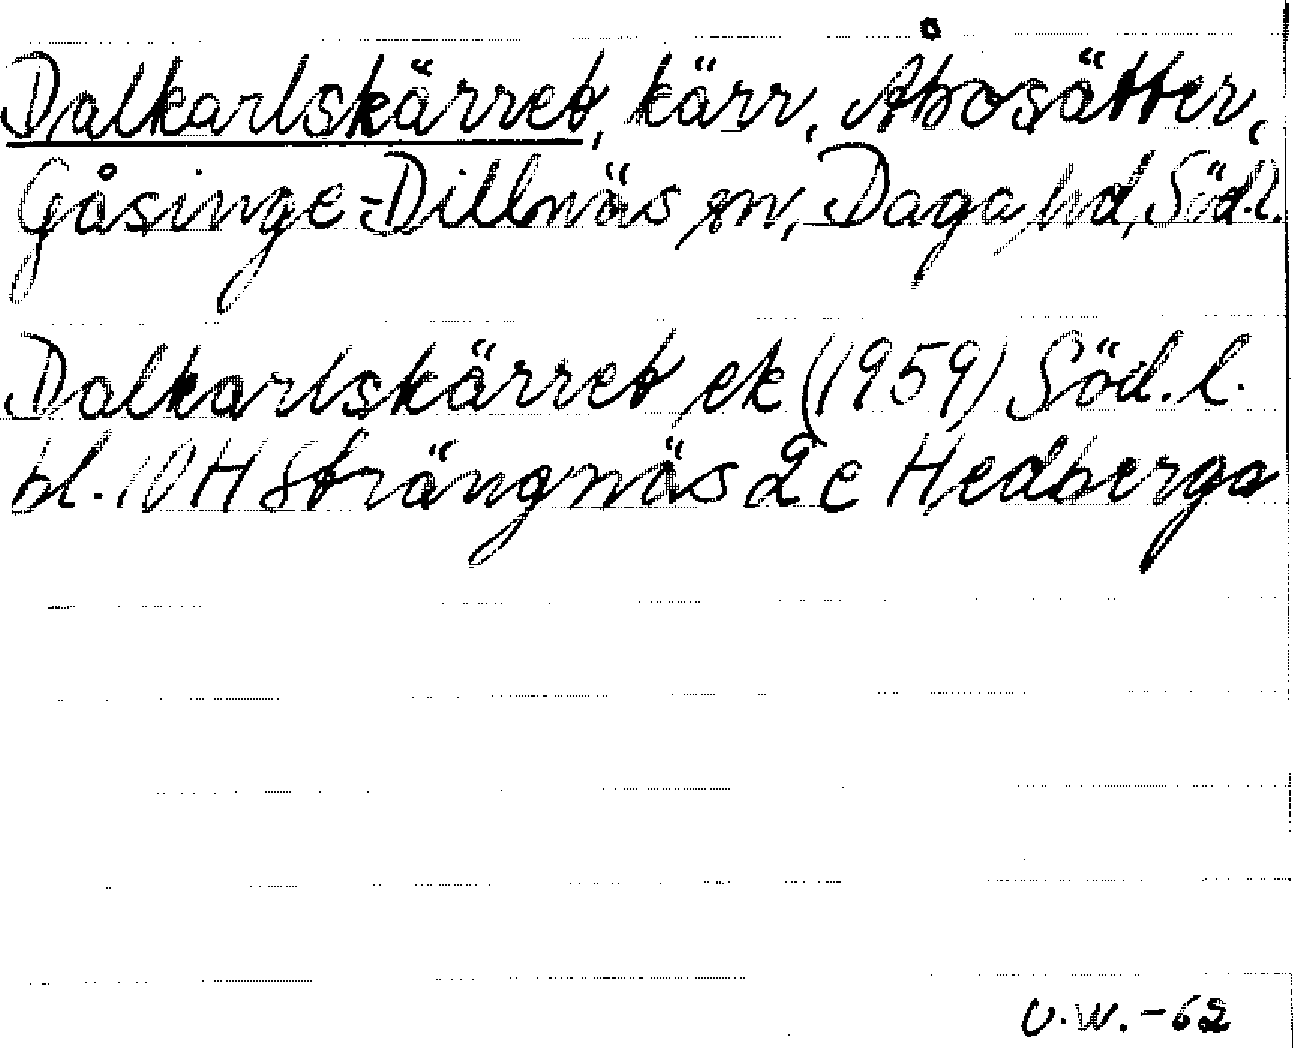 Dalkarlskärret, kärr, Åbosätter,
Gåsinge-Dillnäs sn, Daga hd, Söd.l.
Dalkarlskärret ek (1959) Söd. l.
bl. 10 H Strängnäs 2 c Hedberga
U.W.-62